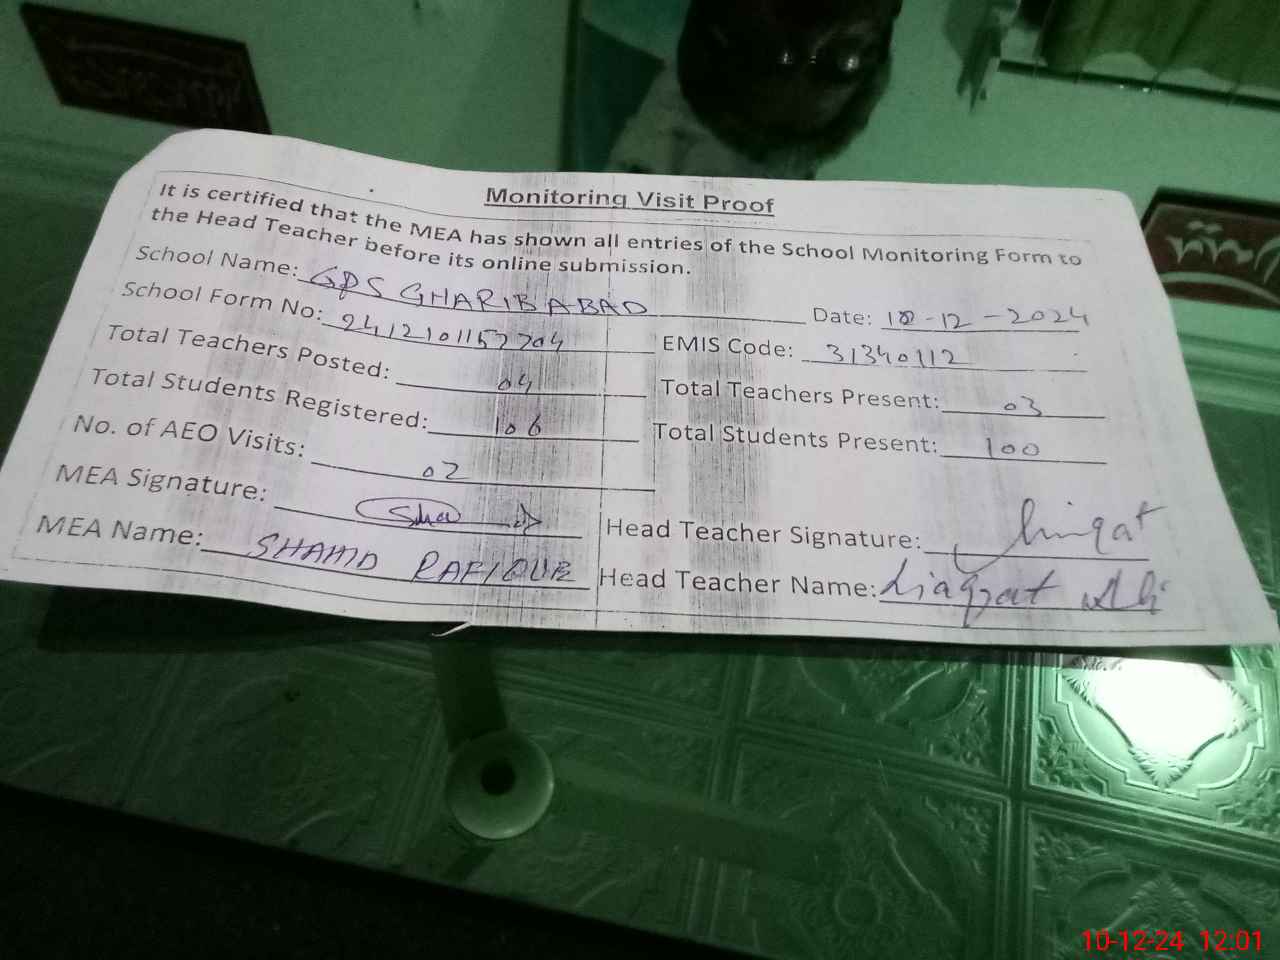 Monitoring Visit Proof
It is certified that the MEA has shown all entries of the School Monitoring Form to
the Head Teacher before its online submission.
School Name: GPS GHARIBABAD Date: 10-12-2024
School Form No: 2412101157704 EMIS Code: 31340112
Total Teachers Posted: 04 Total Teachers Present: 03
Total Students Registered: 106 Total Students Present: 100
No. of AEO Visits: 02
MEA Signature: Head Teacher Signature: Liaqat
MEA Name: Head Teacher Name: Liaqat Ali
10-12-24 12:01